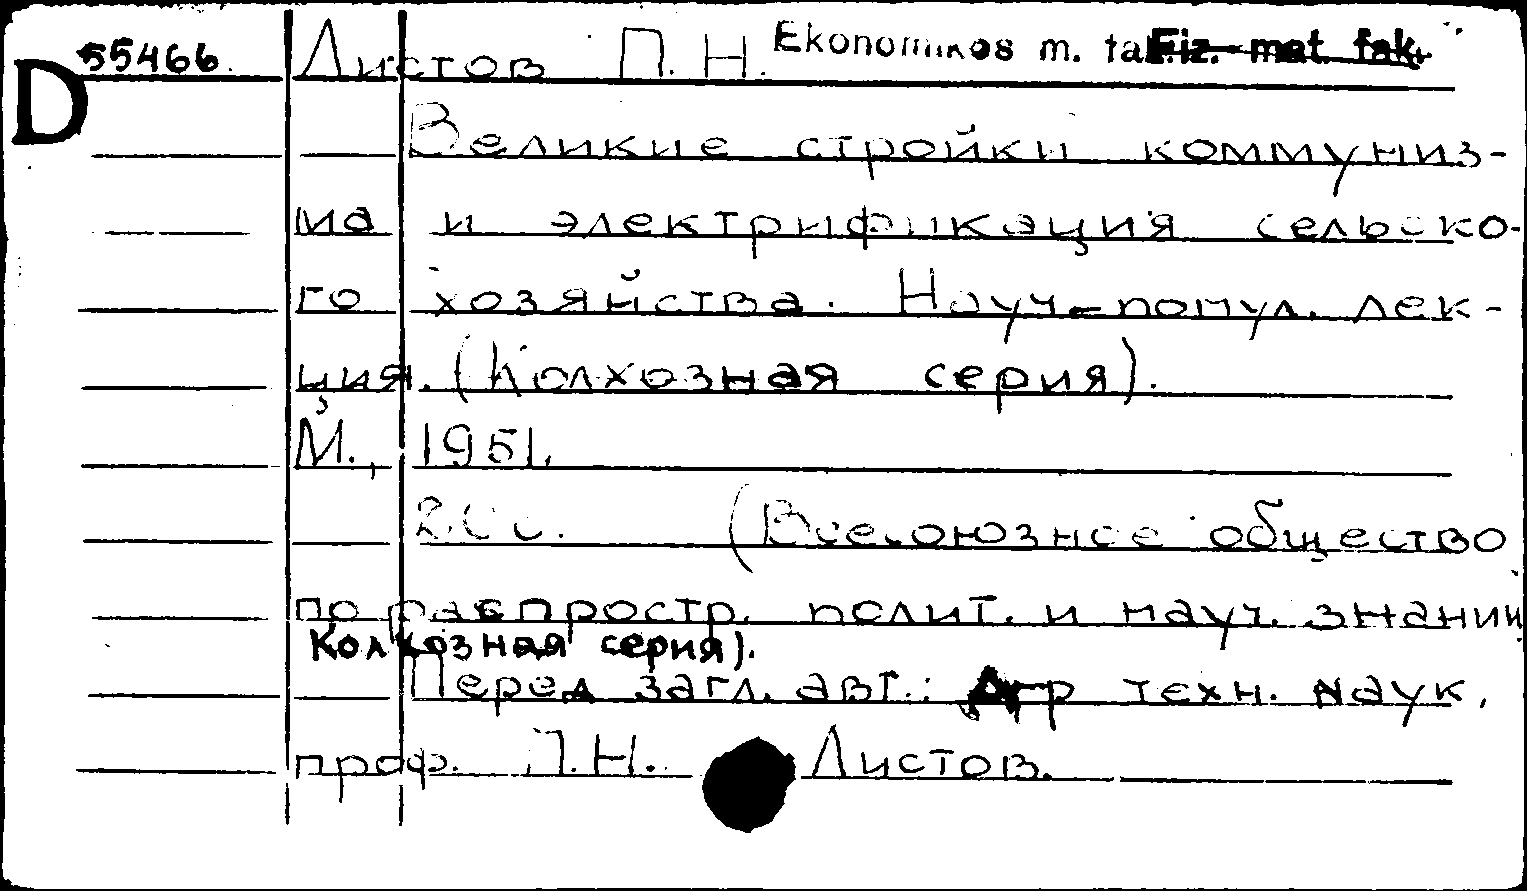 55466. Листов П. Н. Ekonomikos m. fak. Fiz.-mat. fak.
D
Великие стройки коммуниз-
ма и электрификация сельско-
го хозяйства. Науч.-попул. лек-
ция. (Колхозная серия).
М., 1951.
22 с. (Всесоюзное общество
по распростр. полит. и науч. знаний
Колхозная серия).
Перед загл. авт.: Д-р техн. наук,
проф. П.Н. Листов.